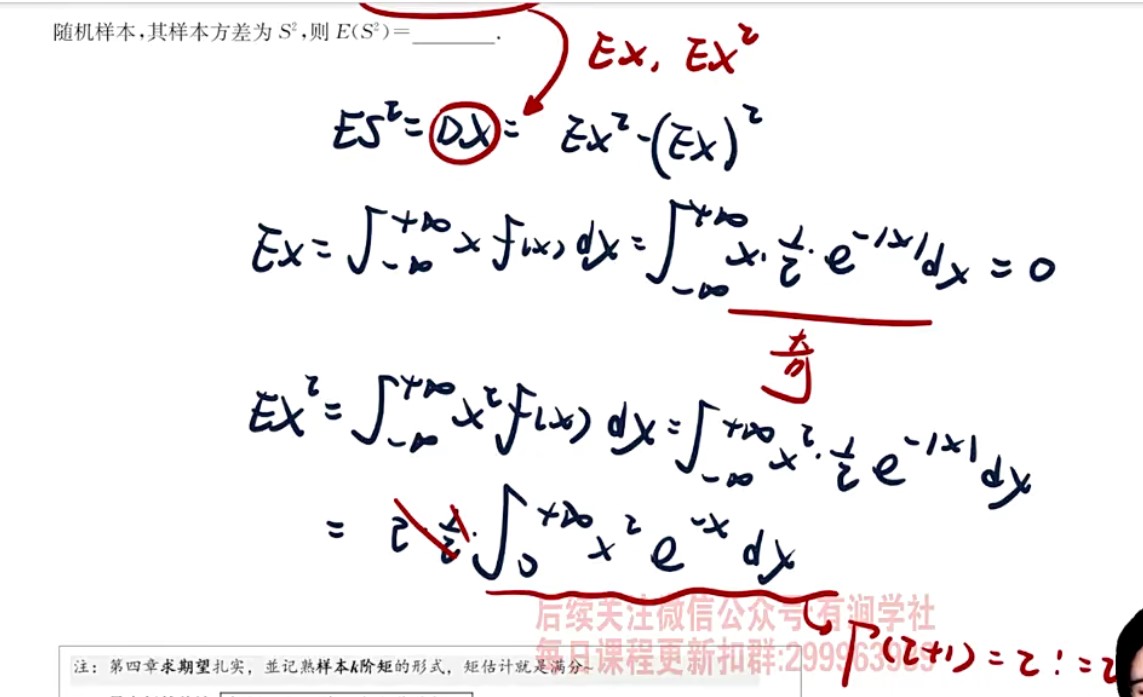 随机样本,其样本方差为 S²,则 E(S²)=________.
EX, EX²
ES² = DX = EX² - (EX)²
EX = ∫_{-∞}^{+∞} x f(x) dx = ∫_{-∞}^{+∞} x · 1/2 · e^{-|x|} dx = 0
奇
EX² = ∫_{-∞}^{+∞} x² f(x) dx = ∫_{-∞}^{+∞} x² · 1/2 e^{-|x|} dx
= 2 · 1/2 · ∫_0^{+∞} x² e^{-x} dx
后续关注微信公众号:有涧学社
Γ(2+1) = 2! = 2
每日课程更新扣群:
注: 第四章求期望扎实, 並记熟样本k阶矩的形式, 矩估计就是满分~